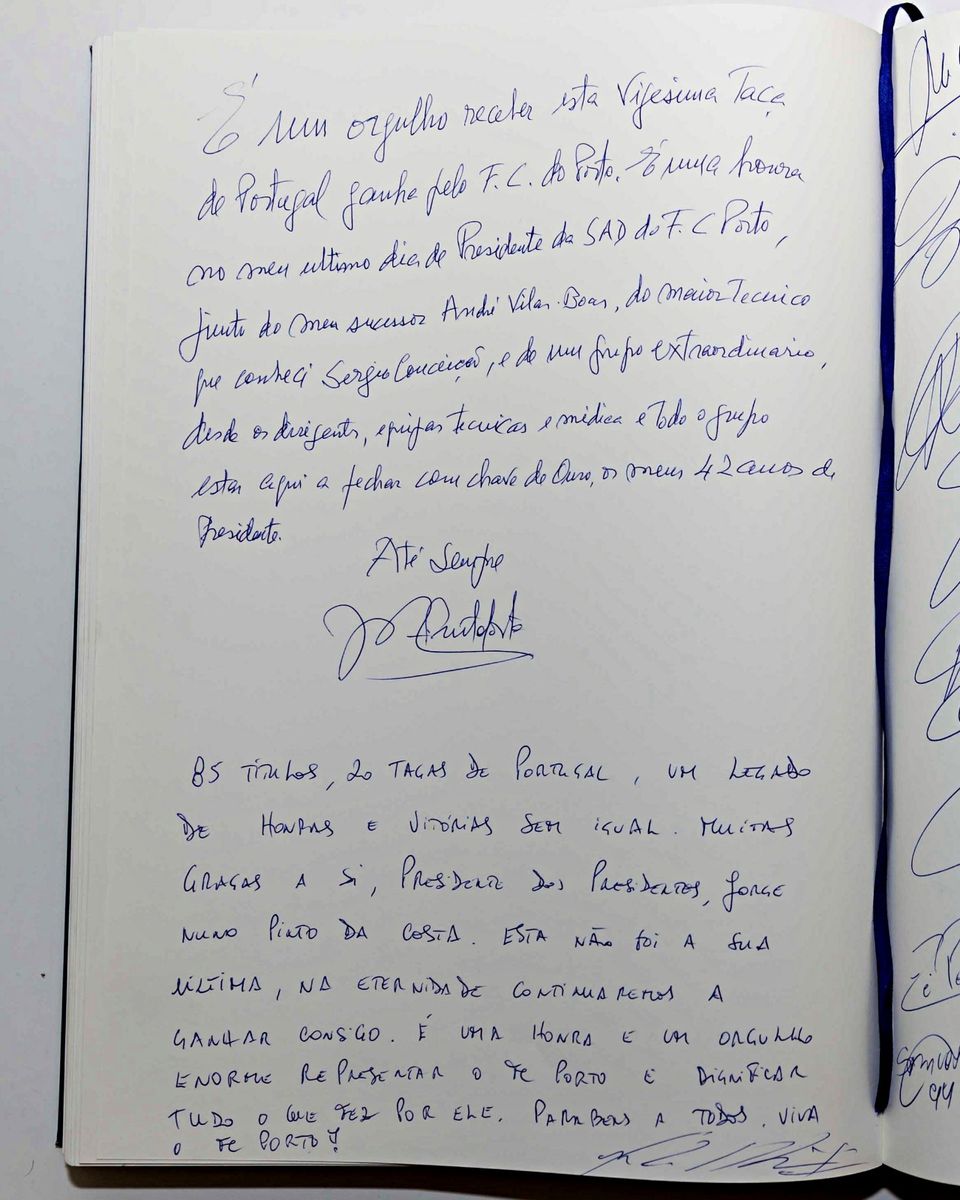 É um orgulho receber esta Vigesima Taça
de Portugal ganha pelo F.C. do Porto. É uma honra
no meu ultimo dia de Presidente da SAD do F.C Porto,
junto do meu sucessor André Vilas-Boas, do maior Tecnico
que conheci Sergio Conceição, e de um grupo extraordinario,
desde os dirigentes, equipas tecnicas e médica e todo o grupo
estar aqui a fechar com chave de Ouro, os meus 42 anos de
Presidente.
Até Sempre
85 TÍTULOS, 20 TAÇAS DE PORTUGAL, UM LEGADO
DE HONRAS E VITÓRIAS SEM IGUAL. MUITAS
GRAÇAS A SI, PRESIDENTE DOS PRESIDENTES, JORGE
NUNO PINTO DA COSTA. ESTA NÃO FOI A SUA
ÚLTIMA, NA ETERNIDADE CONTINUAREMOS A
GANHAR CONSIGO. É UMA HONRA E UM ORGULHO
ENORME REPRESENTAR O FC PORTO E DIGNIFICAR
TUDO O QUE FEZ POR ELE. PARABENS A TODOS. VIVA
O FC PORTO!